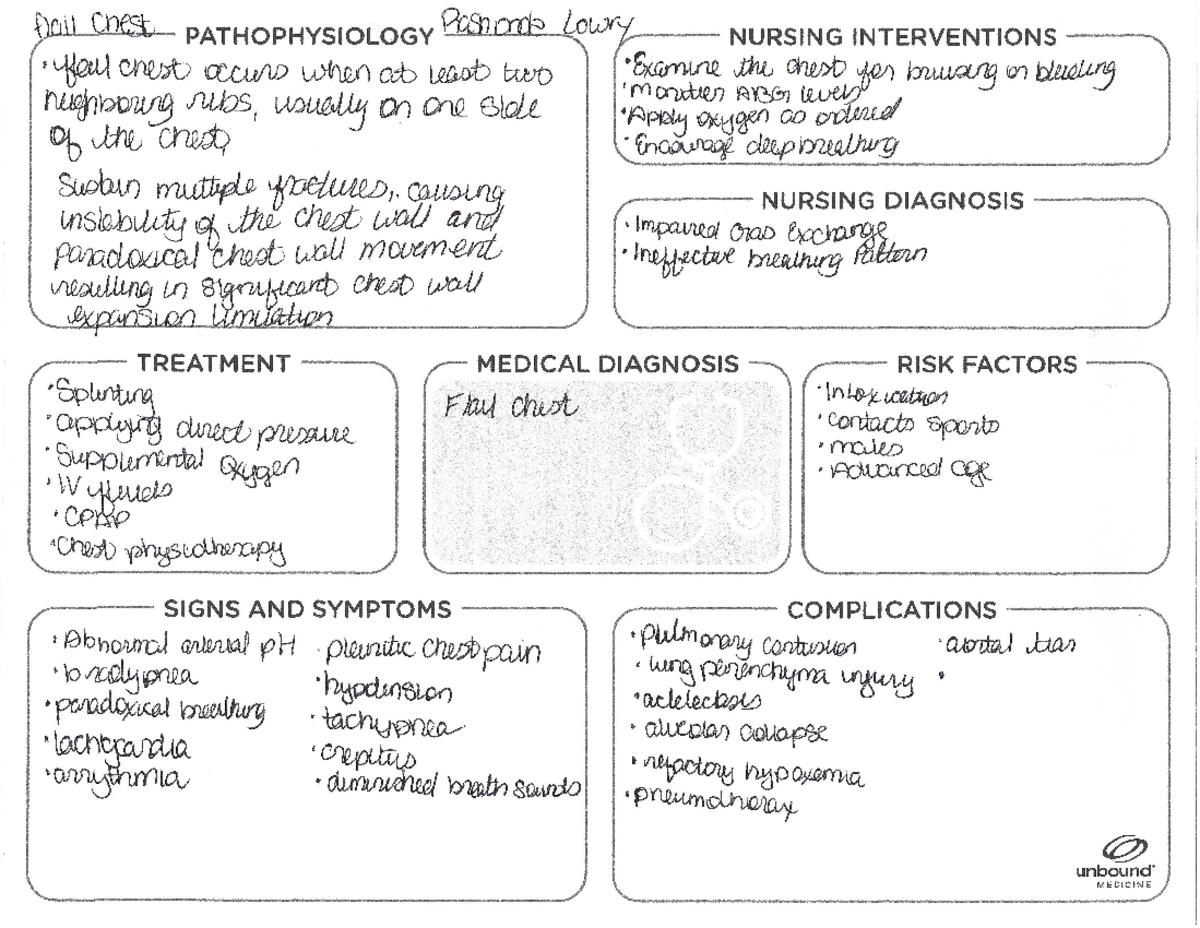 Flail Chest
Lowry
PATHOPHYSIOLOGY
• Flail chest occurs when at least two
neighbouring ribs, usually on one side
of the chest,
Sustain multiple fractures, causing
instability of the chest wall and
paradoxical chest wall movement
resulting in significant chest wall
expansion limitation
NURSING INTERVENTIONS
• Examine the chest for bruising or bleeding
• Monitor ABG levels
• Apply oxygen as ordered
• Encourage deep breathing
NURSING DIAGNOSIS
• Impaired Gas Exchange
• Ineffective breathing Pattern
TREATMENT
• Splinting
• applying direct pressure
• Supplemental Oxygen
• IV fluids
• CPAP
• Chest physiotherapy
MEDICAL DIAGNOSIS
Flail Chest
RISK FACTORS
• Intoxication
• Contacts Sports
• males
• Advanced age
SIGNS AND SYMPTOMS
• Abnormal arterial pH
• bradypnea
• paradoxical breathing
• tachycardia
• arrythmia
• pleuritic chest pain
• hypotension
• tachypnea
• crepitus
• diminished breath sounds
COMPLICATIONS
• pulmonary contusion
• lung perenchyma injury
• atelectasis
• alveolar collapse
• refactory hypoxemia
• pneumothorax
• aortal tear
•
unbound
MEDICINE